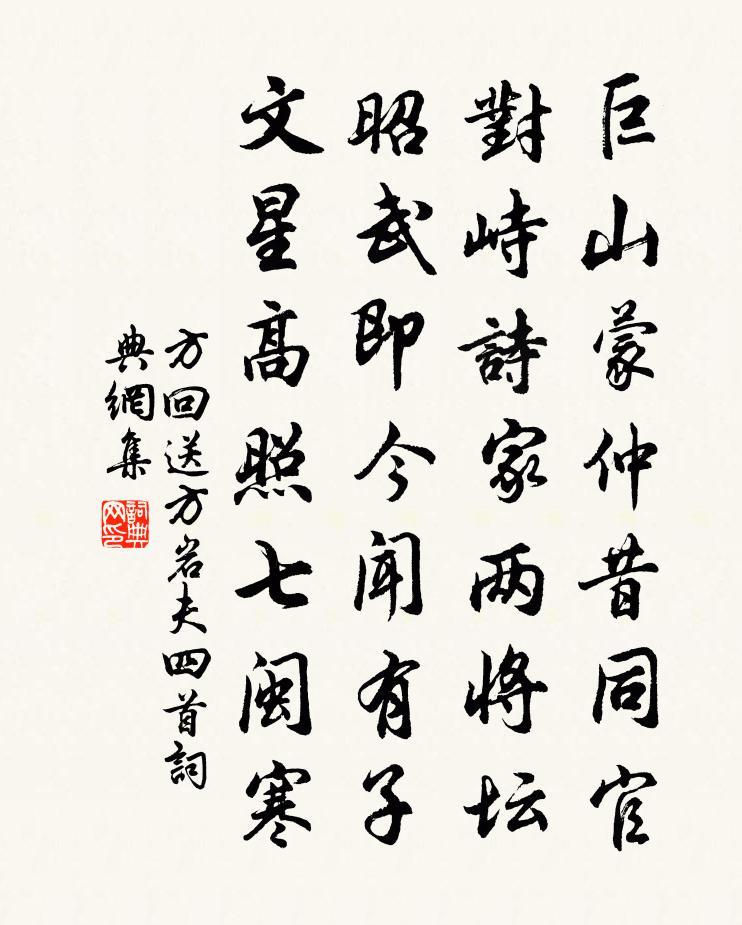 巨山蒙仲昔同官
對峙詩家两将坛
昭武即今闻有子
文星高照七闽寒
方回送方岩夫四首詞
典網集
詞典网印